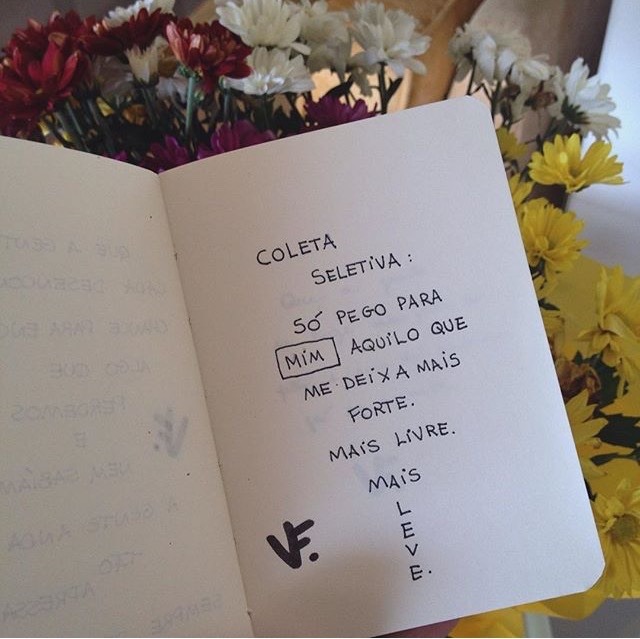 COLETA
SELETIVA:
SÓ PEGO PARA
MIM AQUILO QUE
ME DEIXA MAIS
FORTE.
MAIS LIVRE.
MAIS
L
E
V
E.
VF.